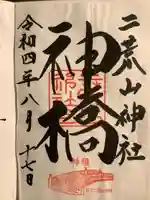 二荒山神社
神橋
令和四年八月十七日
神橋